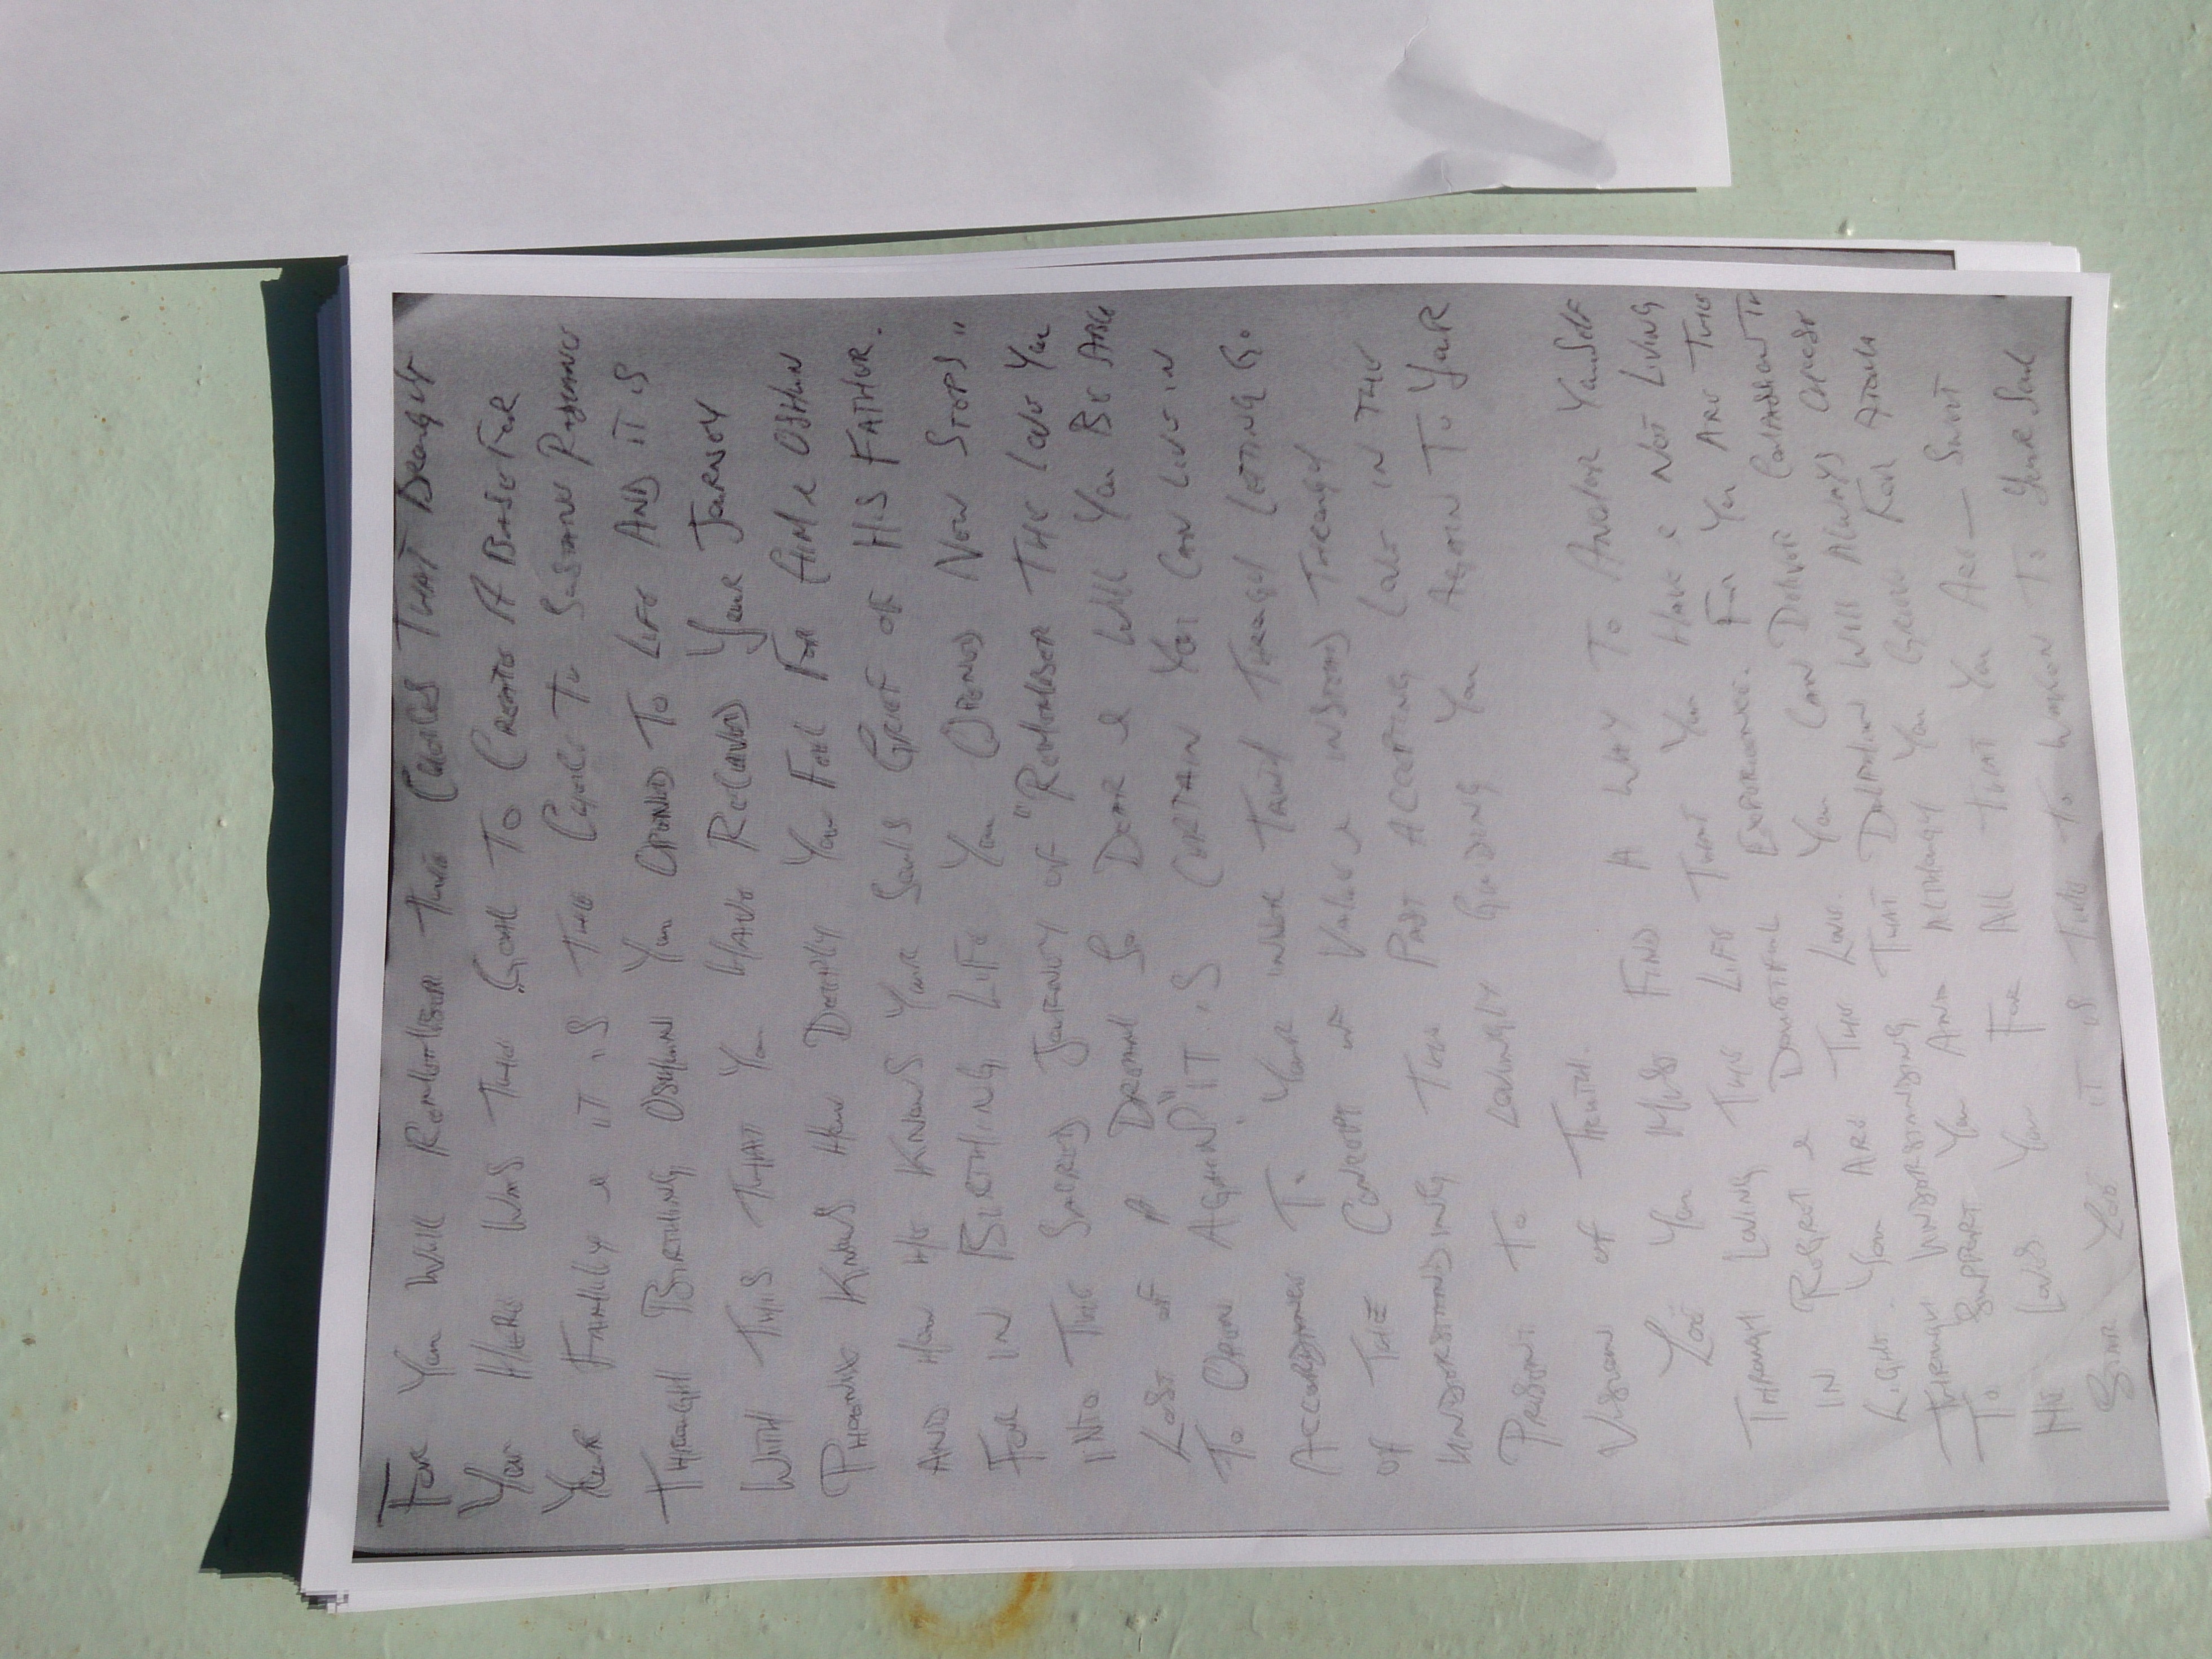 For You Will Remember The Choices That Brought
You Here Was The Goal To Create A Base For
Your Family & it is The Choice To Sustain Radiance
Through Birthing Oshun You Opened To Life And it is
With This That You Have Received Your Journey
Phoenix Knows How Deeply You Feel For Him & Oshun
And How He Knows Your Souls Grief of His Father.
For in Birthing Life You Opened Now Stops"
Into The Sacred Journey of "Remember The Love You
Lost of A Dream So Dear & Will You Be Able
To Open Again?" It is Certain You Can Live in
Accordance To Your Inner Truth Through Letting Go
of The Concept of Value & instead Through
Understanding The Past Accepting Love in The
Present To Lovingly Guiding You Again To Your
Vision of Truth.
You Must Find A Way To Anchor Yourself
Through Loving The Life That You Have & Not Living
in Regret & Doubtful Experience. For You Are The
Light. You Are The Love. You Can Devote Compassion To
Through Understanding That You Can Always Choose
To Support You And Although You Grow For
He Loves You For All That You Are — Sweet
Star it is Time To Waken To Your Soul